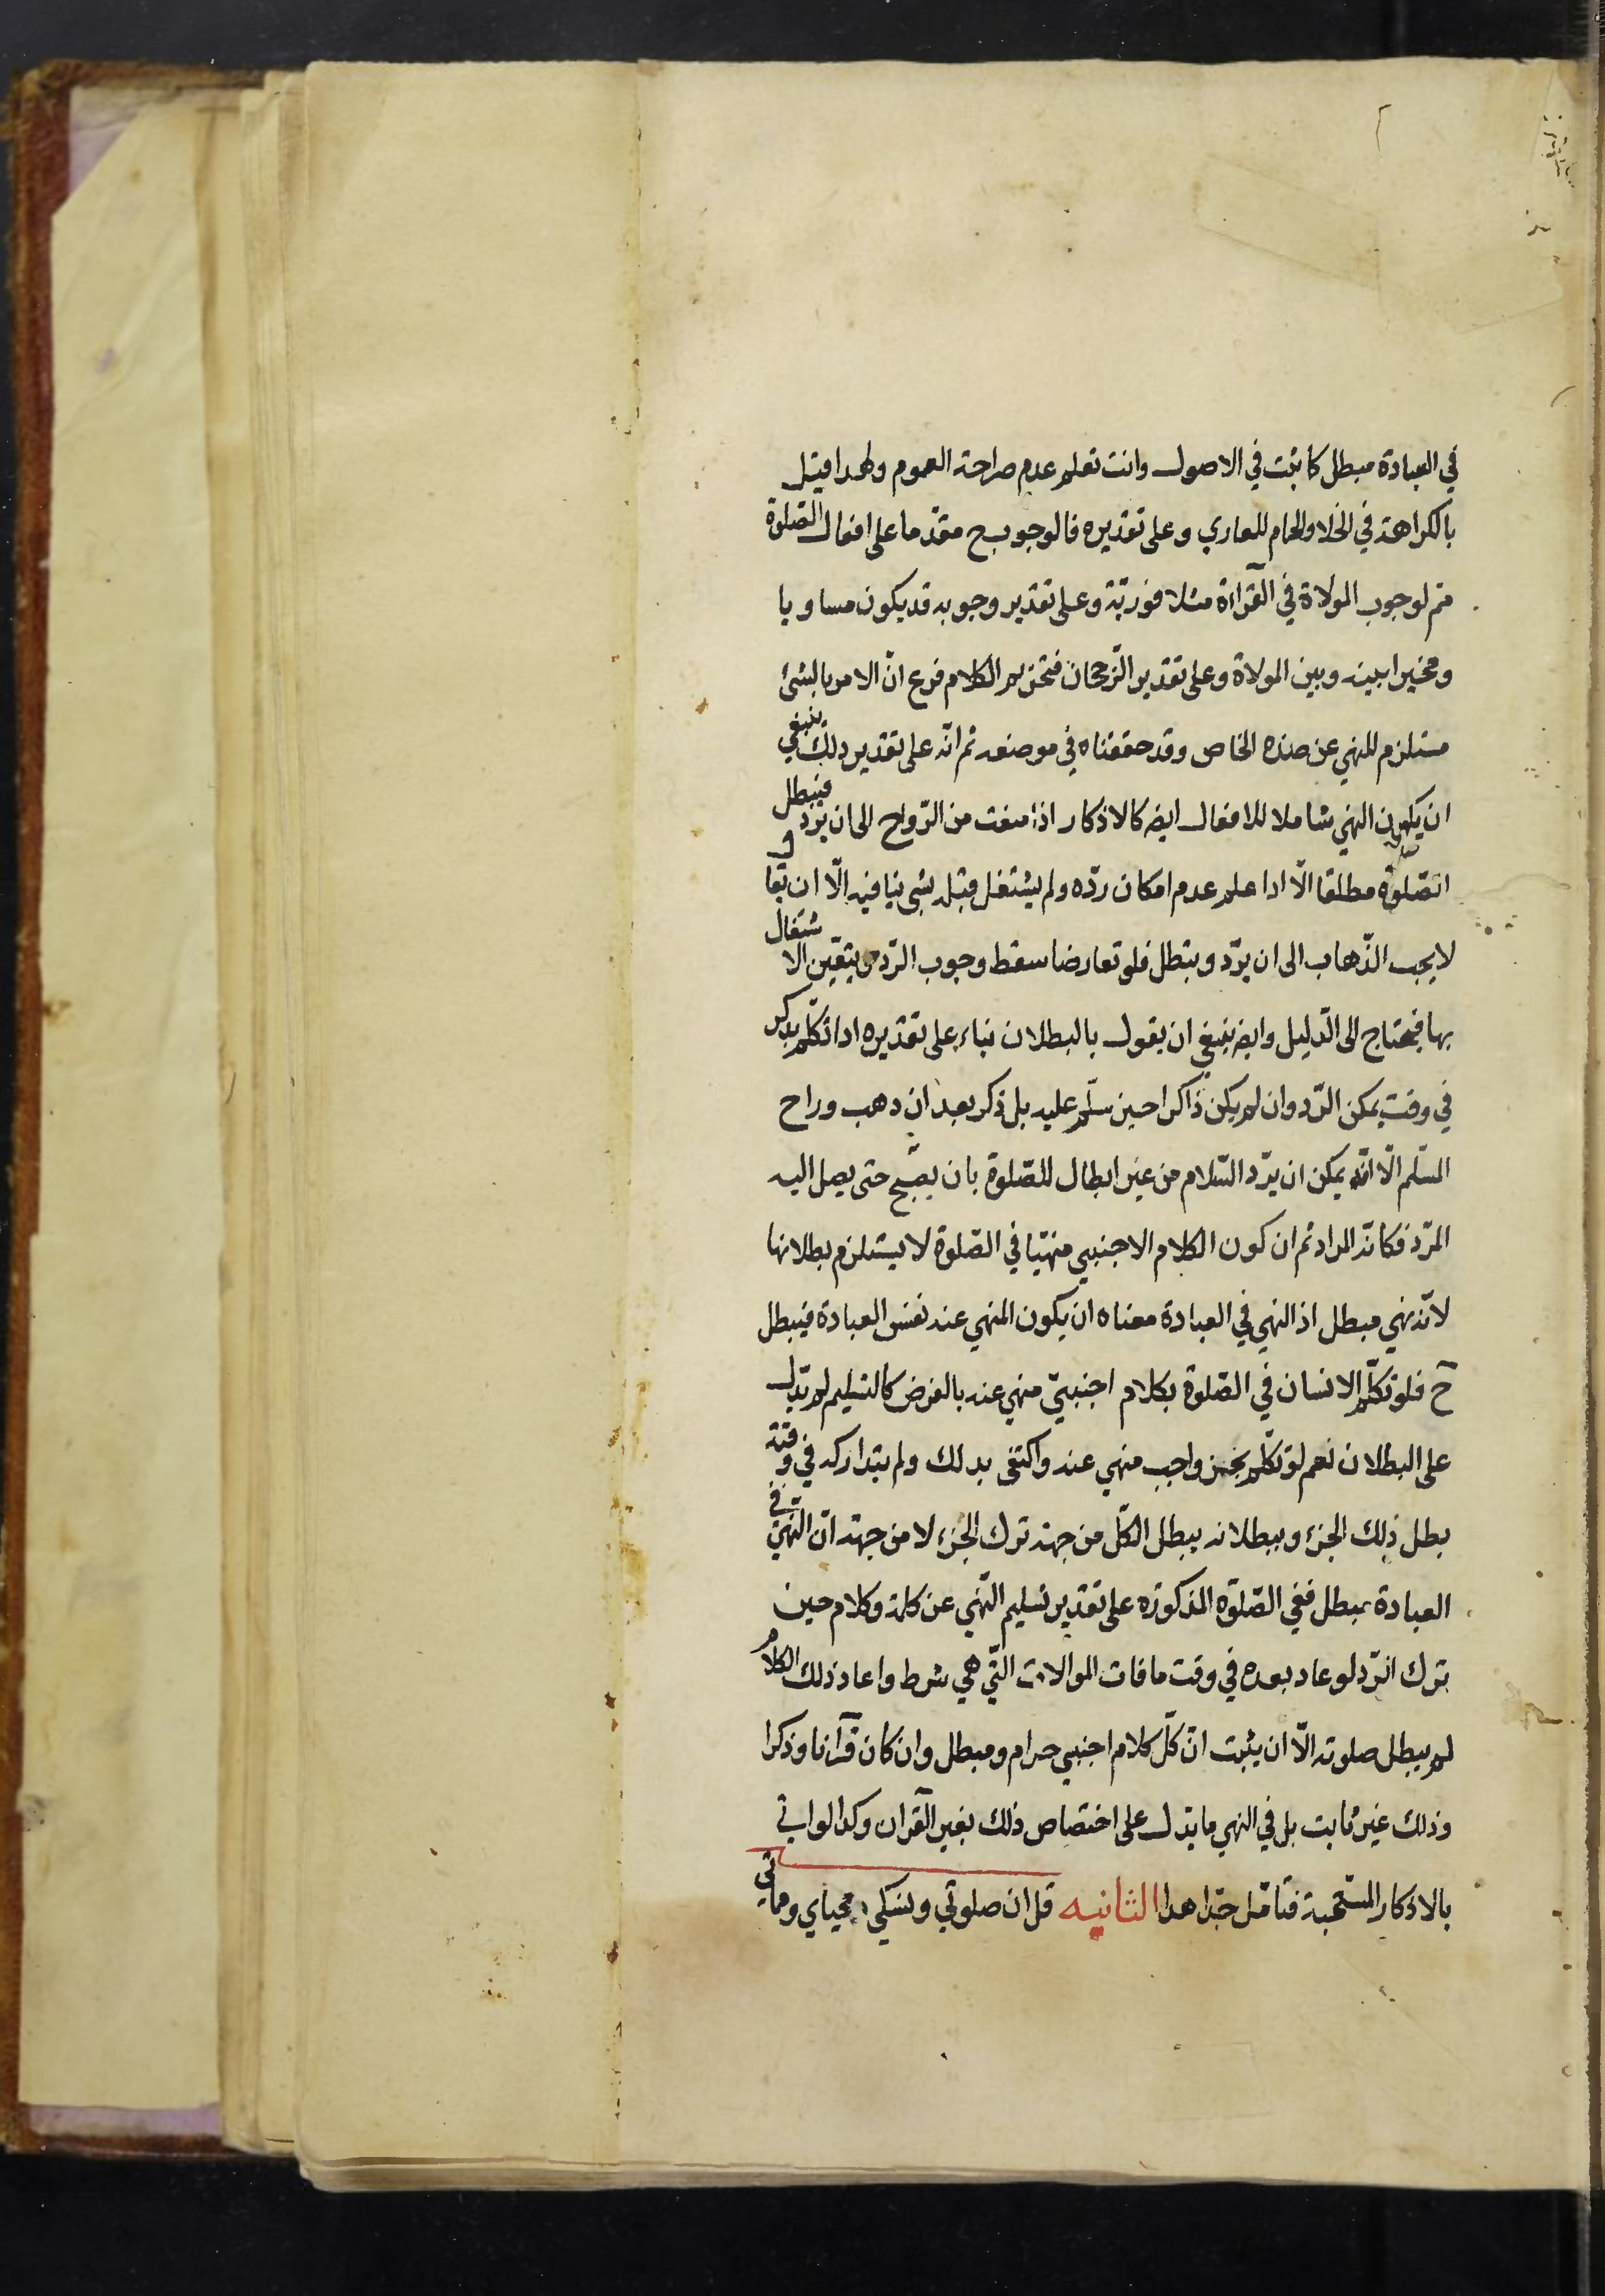 في العبادة مبطل كا ثبت في الاصول وانت تعلم عدم صراحة العموم ولهذا قيل
بالكراهة في الخلا والحمام للعاري وعلى تقديره فالوجوب ح مقدما على افعال الصلوة
مم لوجوب المولاة في القراءة مثلا فورية وعلى تقدير وجوبه قد يكون مساويا
ومخيرا بينه وبين المولاة وعلى تقدير الرجحان فتحريم الكلام فرع ان الامر بالشئ
مستلزم للنهي عن ضده الخاص وقد حققناه في موضعه ثم انه على تقدير ذلك ينبغي
ان يكون النهي شاملا للافعال ايضه كالاذكار اذا منعت من الرواح الى ان يرد فيبطل
الصلوة مطلقا الا اذا علم عدم امكان رده ولم يشتغل قبله بشي ينافيه الا ان يقا
لا يجب الذهاب الى ان يرد ويبطل فلو تعارضا سقط وجوب الرد ويتعين الاشتغال
بها فيحتاج الى الدليل وايضه ينبغي ان يقول بالبطلان بناء على تقديره اذا تكلم بذكر
في وقت يمكن الرد وان لم يكن ذاكرا حين سلم عليه بل ذكر بعد ان ذهب وراح
المسلم الا انه يمكن ان يرد السلام من غير ابطال للصلوة بان يصبح حتى يصل اليه
المرد فكانه المراد ثم ان كون الكلام الاجنبي منهيا في الصلوة لا يستلزم بطلانها
لانه نهي مبطل اذ النهي في العبادة معناه ان يكون المنهي عنه نفس العبادة فيبطل
ح فلو تكلم الانسان في الصلوة بكلام اجنبي منهي عنه بالفرض كالتسليم لم يدل
على البطلان نعم لو تكلم بجزء واجب منهي عنه واكتفى بذلك ولم يتداركه في وقته
بطل ذلك الجزء وببطلانه يبطل الكل من جهة ترك الجزء لا من جهة ان النهي في
العبادة مبطل ففي الصلوة المذكورة على تقدير تسليم النهي عن كلمة وكلام حين
ترك الرد لو عاد بعده في وقت ما فات الموالات التي هي شرط واعاد ذلك الكلام
لم يبطل صلوته الا ان يثبت ان كل كلام اجنبي حرام ومبطل وان كان قرآنا وذكرا
وذلك غير ثابت بل في النهي ما يدل على اختصاص ذلك بغير القرآن وكذا لو اتى
بالاذكار المستحبة فتامل جدا هذا الثانيه قل ان صلوتي ونسكي ومحياي ومماتي